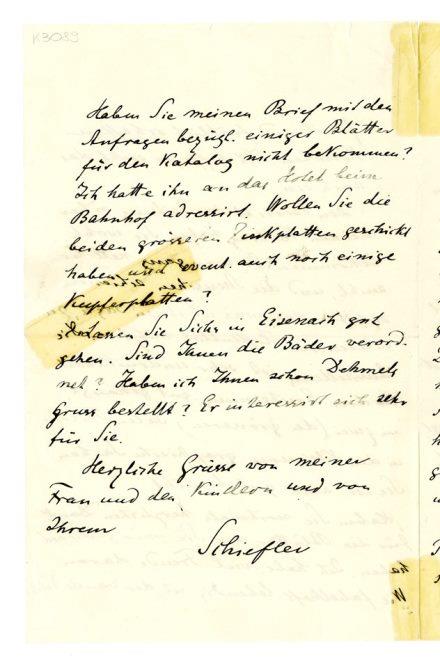 K3089
Haben Sie meinen Brief mit den
Anfragen bezügl. einiger Blätter
für den Katalog nicht bekommen?
Ich hatte ihn an das Hotel beim
Bahnhof adressirt. Wollen Sie die
beiden grösseren Zinkplatten geschickt
haben und event. auch noch einige
Kupferplatten?
Lassen Sie Sichs in Eisenach gut
gehen. Sind Ihnen die Bäder verord-
net? Haben ich Ihnen schon Dehmels
Gruss bestellt? Er interessirt sich sehr
für Sie.
Herzliche Grüsse von meiner
Frau und den Kindern und von
Ihrem
Schiefler